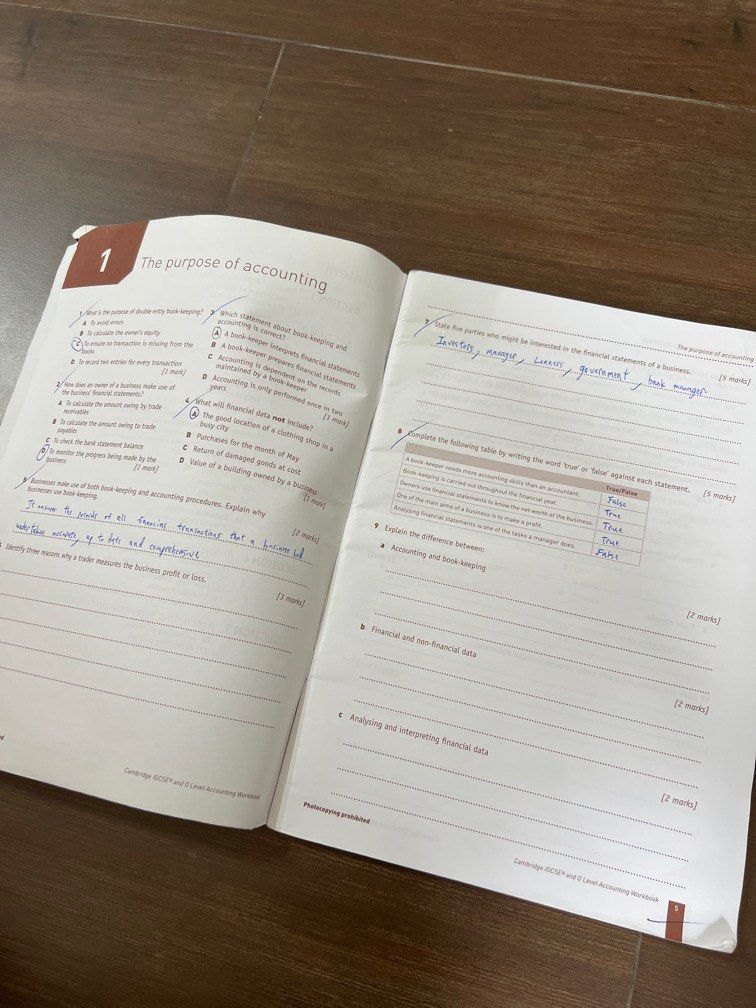 1
The purpose of accounting
1 What is the purpose of double entry book-keeping?
A To avoid errors
B To calculate the owner's equity
C To ensure no transaction is missing from the
books
D To record two entries for every transaction
[1 mark]
2 How does an owner of a business make use of
the business' financial statements?
A To calculate the amount owing by trade
receivables
B To calculate the amount owing to trade
payables
C To check the bank statement balance
D To monitor the progress being made by the
business
[1 mark]
3 Which statement about book-keeping and
accounting is correct?
A A book-keeper interprets financial statements
B A book-keeper prepares financial statements
C Accounting is dependent on the records
maintained by a book-keeper
D Accounting is only performed once in two
years
[1 mark]
4 What will financial data not include?
A The good location of a clothing shop in a
busy city
B Purchases for the month of May
C Return of damaged goods at cost
D Value of a building owned by a business
[1 mark]
5 Businesses make use of both book-keeping and accounting procedures. Explain why
businesses use book-keeping.
[2 marks]
It ensures the records of all financial transactions that a business had
undertaken accurate, up to date and comprehensive
Identify three reasons why a trader measures the business profit or loss.
[3 marks]
Cambridge IGCSE® and O Level Accounting Workbook
The purpose of accounting
7 State five parties who might be interested in the financial statements of a business.
[5 marks]
Investors, manager, Loaners, government, bank manager
8 Complete the following table by writing the word 'true' or 'false' against each statement.
[5 marks]
True/False
A book-keeper needs more accounting skills than an accountant. False
Book-keeping is carried out throughout the financial year. True
Owners use financial statements to know the net worth of the business. True
One of the main aims of a business is to make a profit. True
Analysing financial statements is one of the tasks a manager does. False
9 Explain the difference between:
a Accounting and book-keeping
[2 marks]
b Financial and non-financial data
[2 marks]
c Analysing and interpreting financial data
[2 marks]
Photocopying prohibited
Cambridge IGCSE® and O Level Accounting Workbook
5